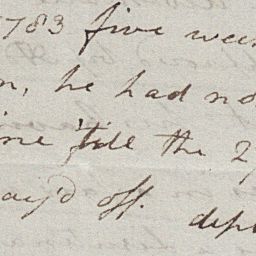 1783 five wee
n, he had no
ine till the 2
pay'd off. dep